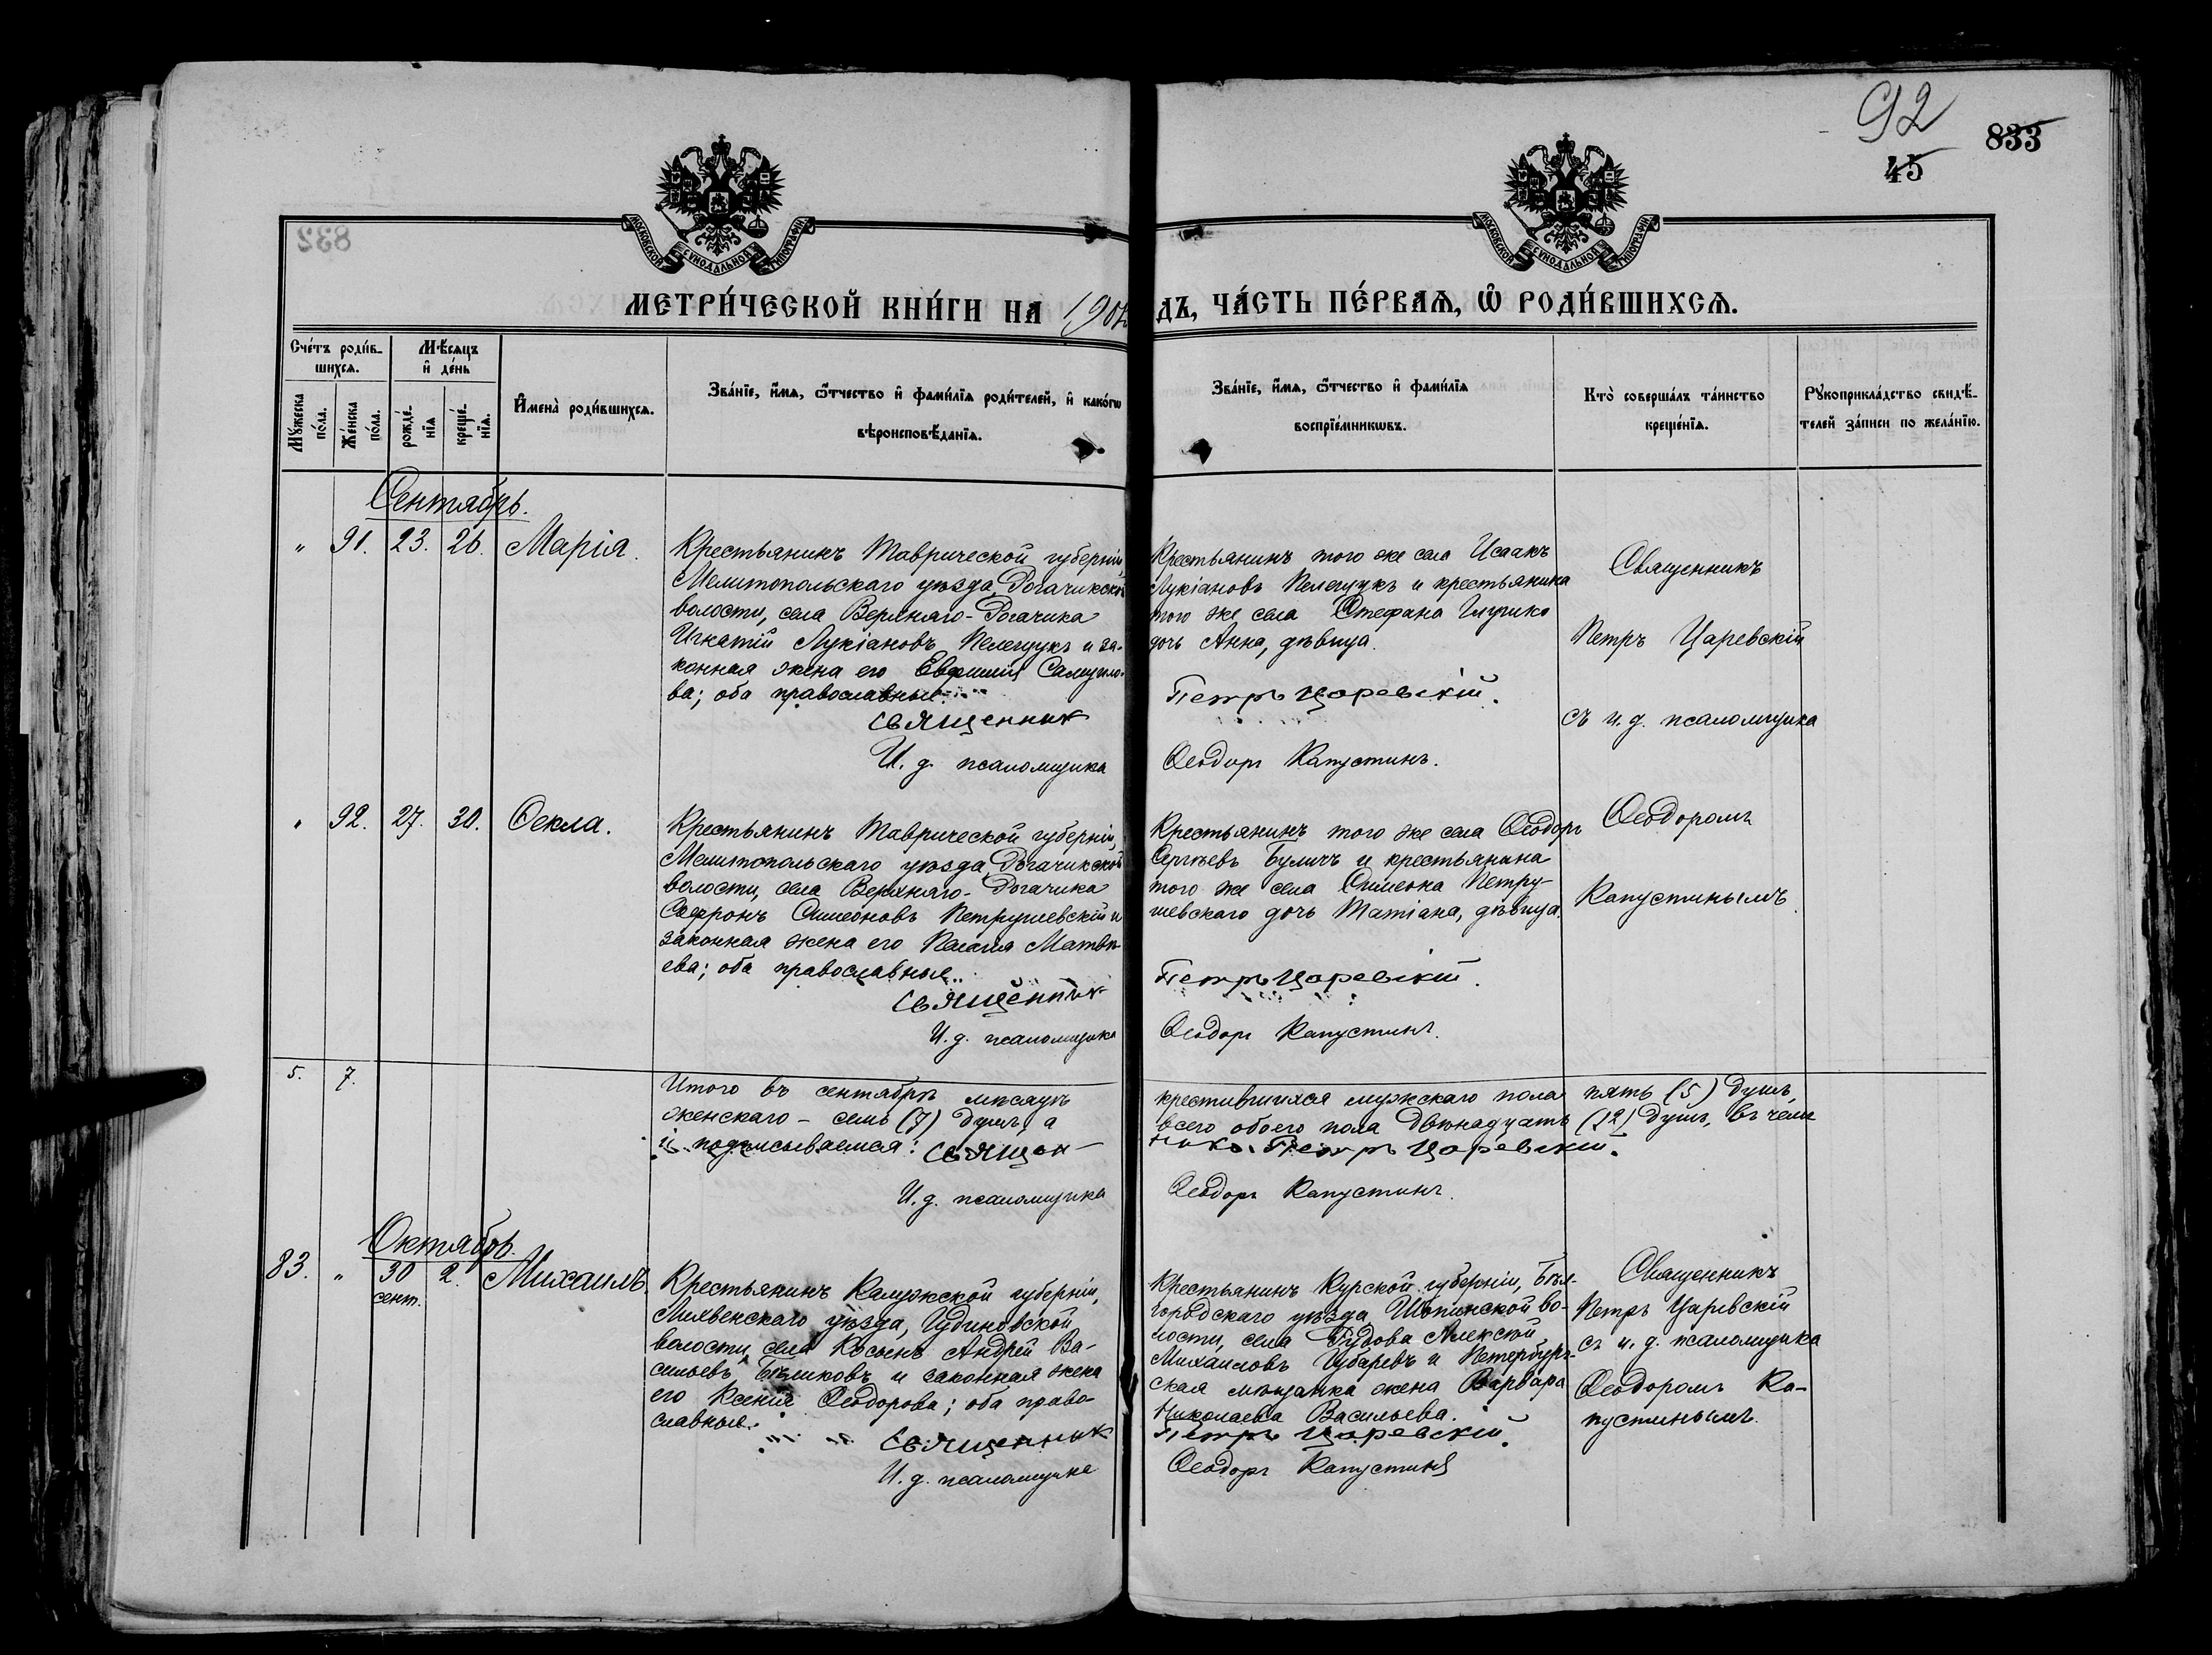 92
833
45
832
МОСКОВСКОЙ СѴНОДАЛЬНОЙ ТИПОГРАФІИ
МОСКОВСКОЙ СѴНОДАЛЬНОЙ ТИПОГРАФІИ
МЕТРИ́ЧЕСКОЙ КНИ́ГИ НА 190
ДЪ, ЧА́СТЬ ПЕ́РВАѦ, Ѡ҆ РОДИ́ВШИХСѦ.
Сче́тъ роди́в-
шихсѧ.
Мꙋ́жеска по́ла.
Же́нска по́ла.
Мѣ́сѧцъ
и҆ де́нь
рожде́-
нїѧ
креще́-
нїѧ.
И҆мена̀ роди́вшихсѧ.
Зва́нїе, и҆́мѧ, ѻ҆́тчество и҆ фами́лїѧ роди́телей, и҆ како́гѡ
вѣроисповѣ́данїѧ.
Зва́нїе, и҆́мѧ, ѻ҆́тчество и҆ фами́лїѧ
воспрїе́мникѡвъ.
Кто̀ соверша́лъ та́инство
креще́нїѧ.
Рꙋкоприкла́дство свидѣ́-
телей за́писи по жела́нїю.
Сентябрь.
" 91. 23. 26. Марія.
Крестьянинъ Таврической губерніи,
Мелитопольскаго уѣзда, Рогачикской
волости, села Верхняго-Рогачика
Игнатій Лукіановъ Пелещукъ и за-
конная жена его Евфимія Самуило-
ва; оба православные.
Священник
И. д. псаломщика
Крестьянинъ того же села Исаакъ
Лукіановъ Пелещукъ и крестьянина
того же села Стефана
дочь Анна, дѣвица.
Петръ Царевскій.
Ѳеодоръ Капустинъ.
Священникъ
Петръ Царевскій
съ и. д. псаломщика
Ѳеодоромъ
Капустинымъ.
" 92. 27. 30. Ѳекла.
Крестьянинъ Таврической губерніи,
Мелитопольскаго уѣзда, Рогачикской
волости, села Верхняго-Рогачика
Софронъ Симеоновъ Петрушевскій и
законная жена его Пелагія Матвѣ-
ева; оба православные.
Священник
И. д. псаломщика
Крестьянинъ того же села Ѳеодоръ
Сергѣевъ Буличъ и крестьянина
того же села Симеона Петру-
шевскаго дочь Татіана, дѣвица.
Петръ Царевскій.
Ѳеодоръ Капустинъ.
5. 7.
Итого въ сентябрѣ мѣсяцѣ крестившихся мужскаго пола пять (5) душъ,
женскаго – семь (7) душъ, а всего обоего пола двѣнадцать (12) душъ, въ чемъ
и подписываемся: Священ- никъ Петръ Царевскій.
И. д. псаломщика Ѳеодоръ Капустинъ.
Октябрь.
83. " 30 2. Михаилъ.
сент.
Крестьянинъ Калужской губерніи,
Лихвенскаго уѣзда, Чудиновской
волости, села Косынь Андрей Ва-
сильевъ Бѣликовъ и законная жена
его Ксенія Ѳеодорова; оба право-
славные.
Священник
И. д. псаломщика
Крестьянинъ Курской губерніи, Бѣл-
городскаго уѣзда Шопинской во-
лости, села Алексѣй
Михаиловъ Губаревъ и Петербург-
ская мѣщанка жена Варвара
Николаева Васильева.
Петръ Царевскій.
Ѳеодоръ Капустинъ
Священникъ
Петръ Царевскій
съ и. д. псаломщика
Ѳеодоромъ Ка-
пустинымъ.